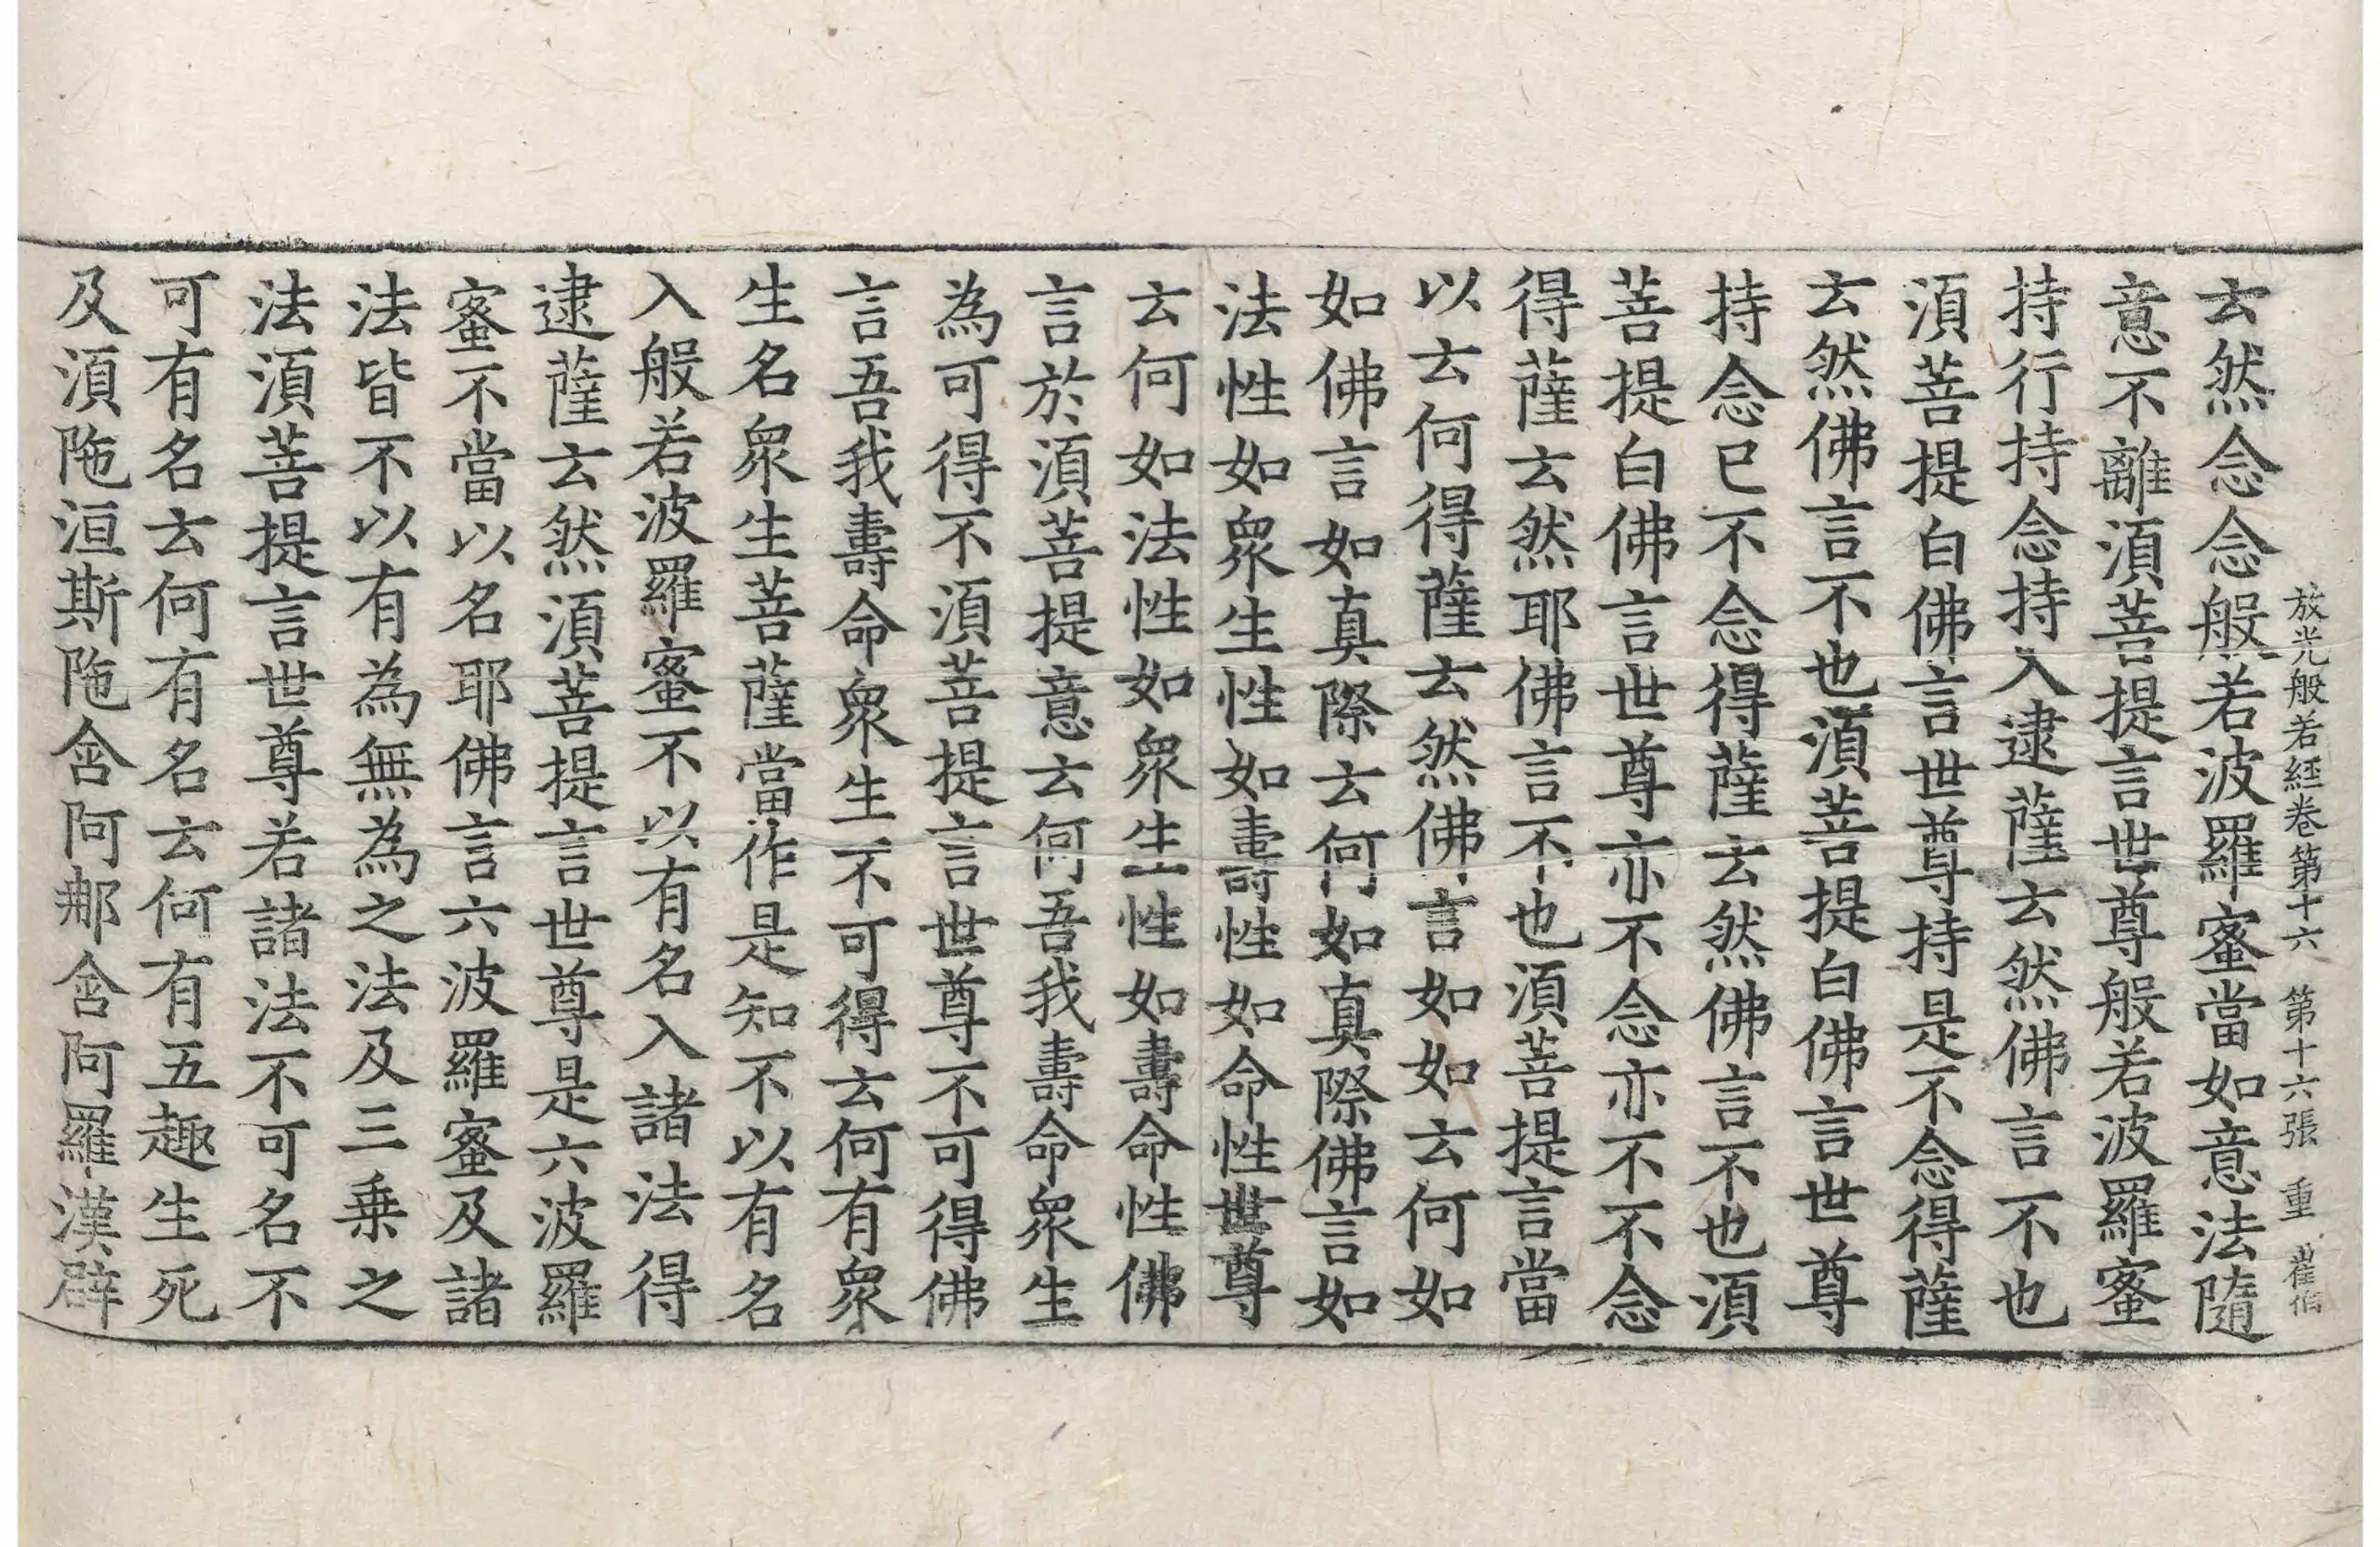 放光般若経卷第十六 第十六張 重 崔佰
云然念念般若波羅蜜當如意法隨
意不離湏菩提言世尊般若波羅蜜
持行持念持入逮薩云然佛言不也
湏菩提白佛言世尊持是不念得薩
云然佛言不也湏菩提白佛言世尊
持念已不念得薩云然佛言不也湏
菩提白佛言世尊亦不念亦不不念
得薩云然耶佛言不也湏菩提言當
以云何得薩云然佛言如如云何如
如佛言如真際云何如真際佛言如
法性如衆生性如壽性如命性世尊
云何如法性如衆生性如壽命性佛
言於湏菩提意云何吾我壽命衆生
為可得不湏菩提言世尊不可得佛
言吾我壽命衆生不可得云何有衆
生名衆生菩薩當作是知不以有名
入般若波羅蜜不以有名入諸法得
逮薩云然湏菩提言世尊是六波羅
蜜不當以名耶佛言六波羅蜜及諸
法皆不以有為無為之法及三乗之
法湏菩提言世尊若諸法不可名不
可有名云何有名云何有五趣生死
及湏陁洹斯陁含阿那含阿羅漢辟